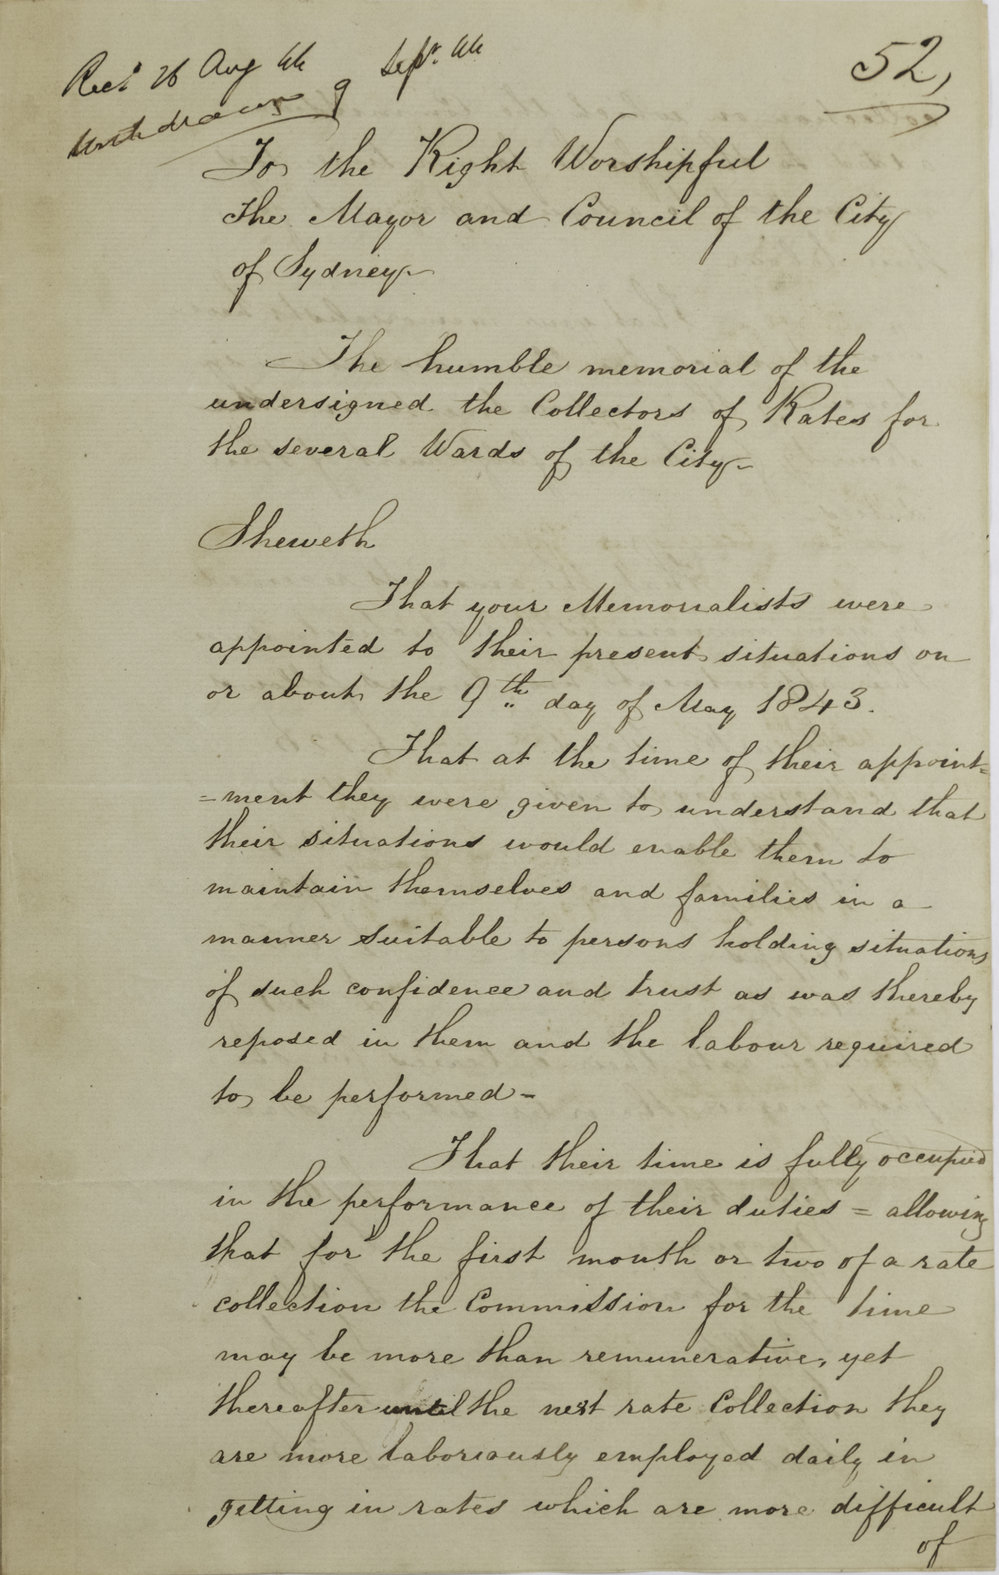 Recd 26 Aug 44
Withdrawn 9 Sepr. 44
52,
To the Right Worshipful
The Mayor and Council of the City
of Sydney–
The humble memorial of the
undersigned the Collectors of Rates for
the several Wards of the City–
Sheweth
That your Memorialists were
appointed to their present situations on
or about the 9th day of May 1843.
That at the time of their appoint=
=ment they were given to understand that
their situations would enable them to
maintain themselves and families in a
manner suitable to persons holding situations
of such confidence and trust as was thereby
reposed in them and the labour required
to be performed–
That their time is fully occupied
in the performance of their duties = allowing
that for the first month or two of a rate
collection the Commission for the time
may be more than remunerative, yet
thereafter until the next rate Collection they
are more laboriously employed daily in
getting in rates which are more difficult
of